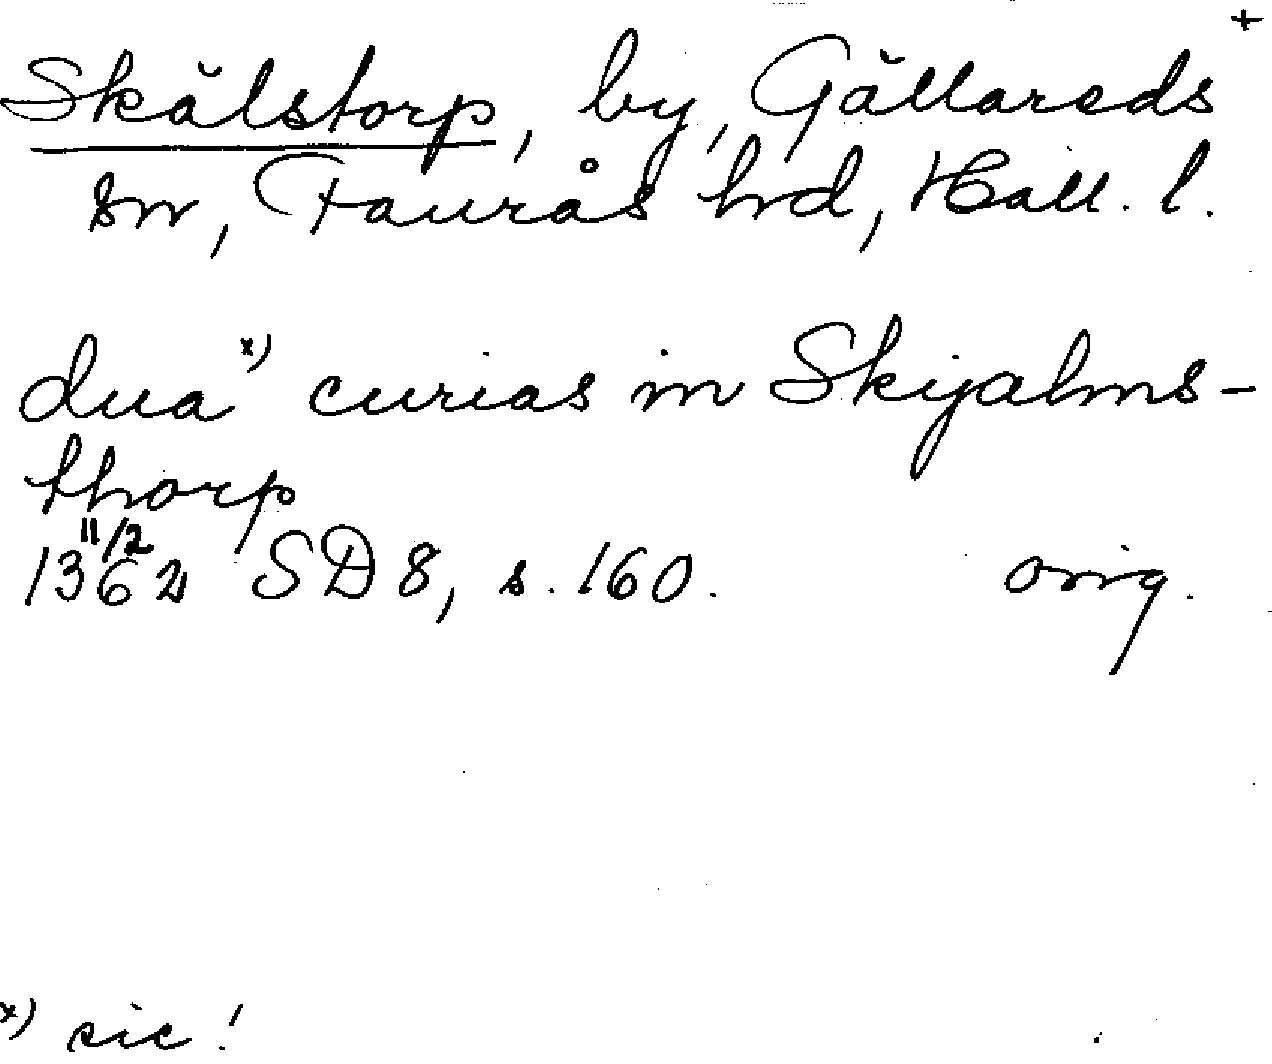 +
Skälstorp, by, Gällareds
sn, Faurås hrd, Hall. l.
dua x) curias in Skyalms-
thorp
1362 11/2 SD 8, s. 160. orig.
x) sic!